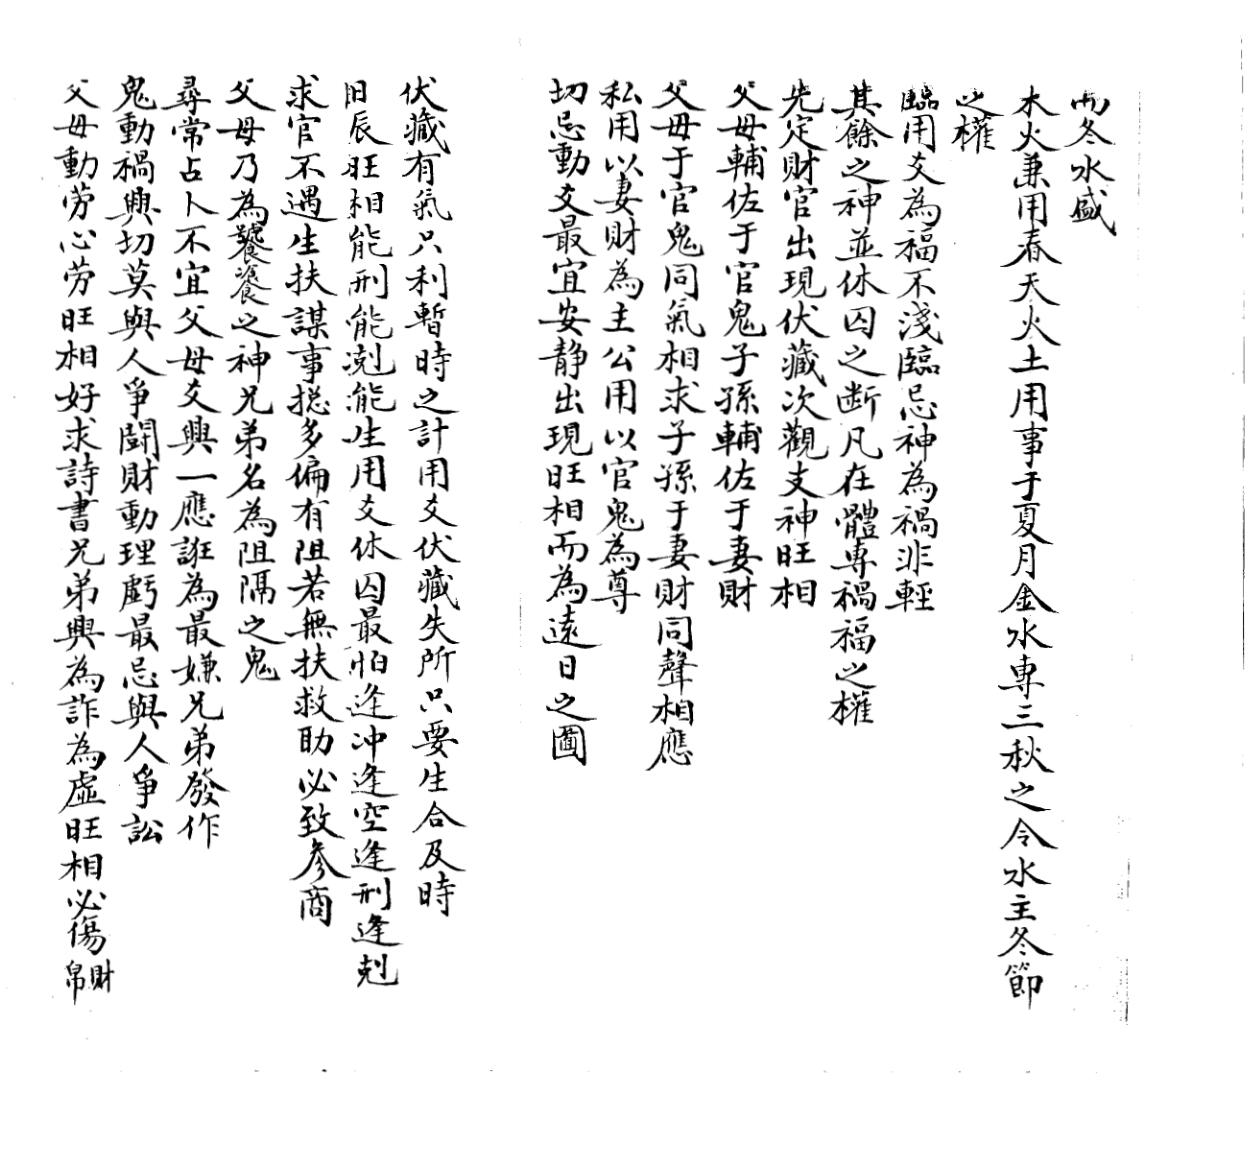 而冬水盛
木火兼用春天火土用事于夏月金水専三秋之令水主冬節
之權
臨用爻為福不淺臨忌神為禍非輕
其餘之神並休囚之断凡在體専禍福之權
先定財官出現伏藏次觀支神旺相
父母輔佐于官鬼子孫輔佐于妻財
父母于官鬼同氣相求子孫于妻財同聲相應
私用以妻財為主公用以官鬼為尊
切忌動爻最宜安静出現旺相而為遠日之圖
伏藏有氣只利暫時之計用爻伏藏失所只要生合及時
日辰旺相能刑能剋能生用爻休囚最怕逢冲逢空逢刑逢剋
求官不遇生扶謀事捴多偏有阻若無扶救助必致参商
父母乃為饕餮之神兄弟名為阻隔之鬼
尋常占卜不宜父母爻興一應誑為最嫌兄弟發作
鬼動禍興切莫與人爭鬪財動理虧最忌與人爭訟
父母動劳心劳旺相好求詩書兄弟興為詐為虛旺相必傷財帛